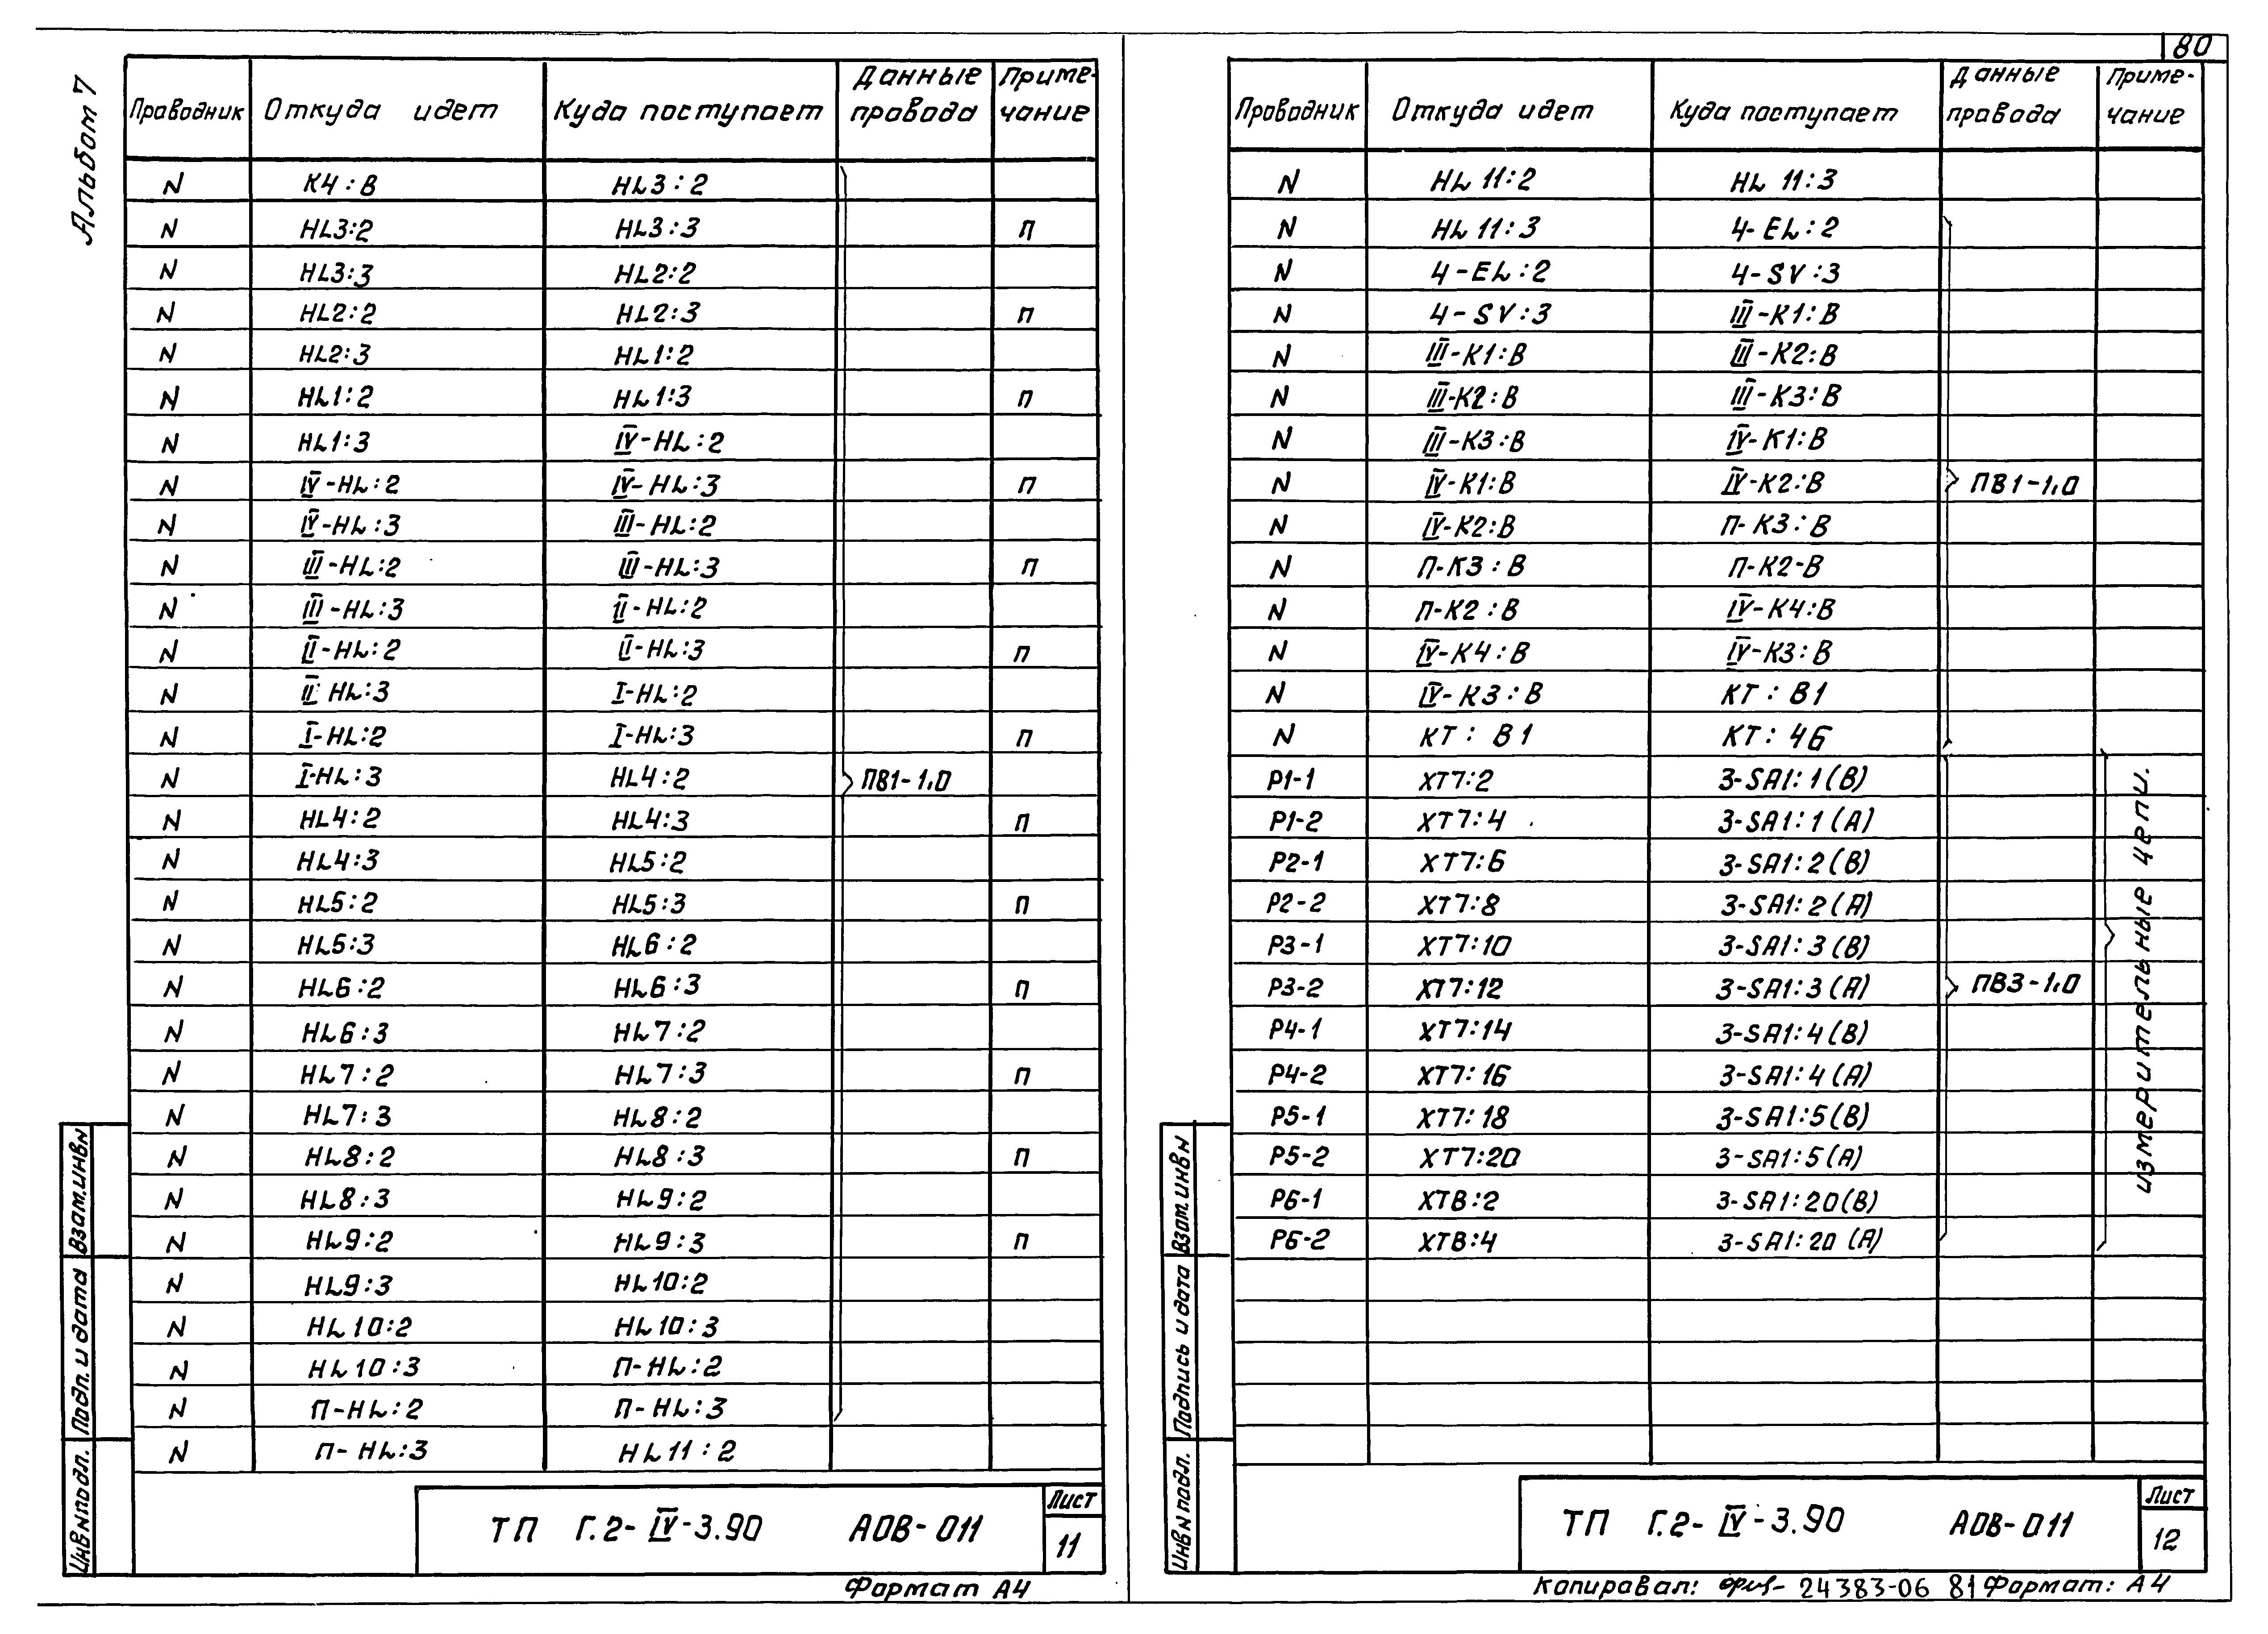 80
Альбом 7
Проводник Откуда идет Куда поступает Данные провода Приме-чание
N К4:В HL3:2
N HL3:2 HL3:3 п
N HL3:3 HL2:2
N HL2:2 HL2:3 п
N HL2:3 HL1:2
N HL1:2 HL1:3 п
N HL1:3 IV-HL:2
N IV-HL:2 IV-HL:3 п
N IV-HL:3 III-HL:2
N III-HL:2 III-HL:3 п
N III-HL:3 II-HL:2
N II-HL:2 II-HL:3 п
N II HL:3 I-HL:2
N I-HL:2 I-HL:3 п
N I-HL:3 HL4:2 ПВ1-1,0
N HL4:2 HL4:3 п
N HL4:3 HL5:2
N HL5:2 HL5:3 п
N HL5:3 HL6:2
N HL6:2 HL6:3 п
N HL6:3 HL7:2
N HL7:2 HL7:3 п
N HL7:3 HL8:2
N HL8:2 HL8:3 п
N HL8:3 HL9:2
N HL9:2 HL9:3 п
N HL9:3 HL10:2
N HL10:2 HL10:3
N HL10:3 П-HL:2
N П-HL:2 П-HL:3
N П-HL:3 HL11:2
Взам.инвN
Подп. и дата
ИнвNподл.
ТП Г.2-IV-3.90 АОВ-011
Лист
11
Формат А4
Проводник Откуда идет Куда поступает Данные провода Приме-чание
N HL 11:2 HL 11:3
N HL 11:3 4-EL:2
N 4-EL:2 4-SV:3
N 4-SV:3 III-К1:В
N III-К1:В III-К2:В
N III-К2:В III-К3:В
N III-К3:В IV-К1:В
N IV-К1:В IV-К2:В ПВ1-1,0
N IV-К2:В П-К3:В
N П-К3:В П-К2-В
N П-К2:В IV-К4:В
N IV-К4:В IV-К3:В
N IV-К3:В КТ:В1
N КТ:В1 КТ:4Б
Р1-1 ХТ7:2 3-SA1:1(В)
Р1-2 ХТ7:4 3-SA1:1(А)
Р2-1 ХТ7:6 3-SA1:2(В)
Р2-2 ХТ7:8 3-SA1:2(А)
Р3-1 ХТ7:10 3-SA1:3(В)
Р3-2 ХТ7:12 3-SA1:3(А) ПВ3-1,0
Р4-1 ХТ7:14 3-SA1:4(В)
Р4-2 ХТ7:16 3-SA1:4(А)
Р5-1 ХТ7:18 3-SA1:5(В)
Р5-2 ХТ7:20 3-SA1:5(А)
Р6-1 ХТ8:2 3-SA1:20(В)
Р6-2 ХТ8:4 3-SA1:20(А)
измерительные цепи.
Взам инвN
Подпись и дата
ИнвN подл.
ТП Г.2-IV-3.90 АОВ-011
Лист
12
Копировал: 24383-06 81 Формат: А4